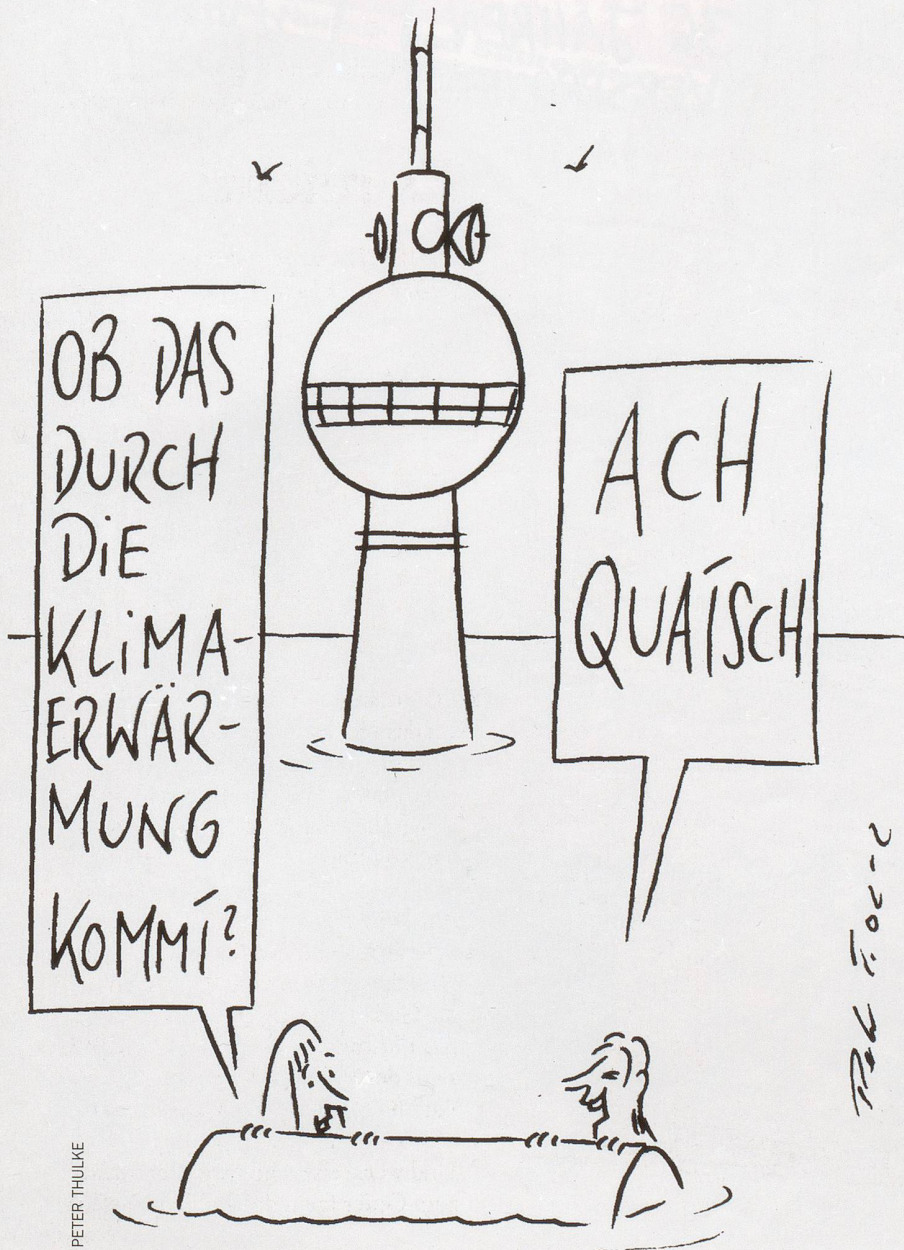 OB DAS
DURCH
DIE
KLIMA-
ERWÄR-
MUNG
KOMMT?
ACH
QUATSCH
PETER THULKE